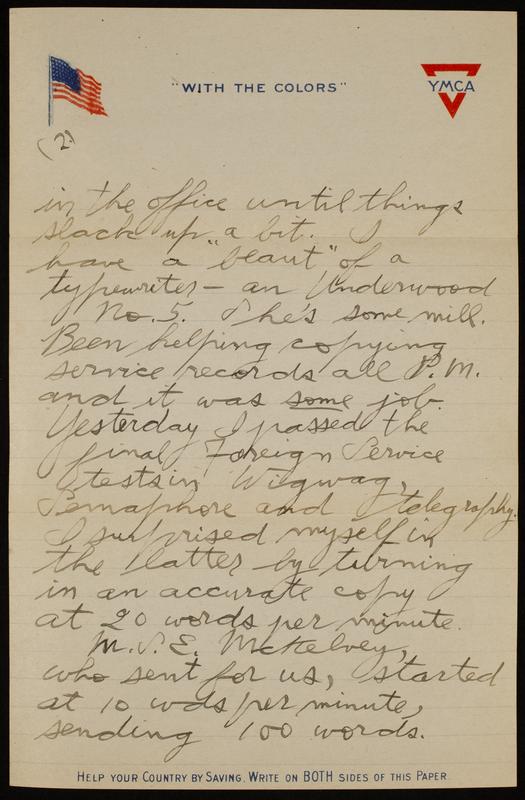 "WITH THE COLORS"
YMCA
(2)
in the office until things
slack up "a bit. I
have a "beaut" of a
typewriter – an Underwood
No. 5. She's some mill.
Been helping copying
service records all P.M.
and it was some job.
Yesterday I passed the
final Foreign Service
tests in Wigwag,
Semaphore and telegraphy.
I surprised myself in
the latter by turning
in an accurate copy
at 20 words per minute.
M.S.E. McKelvey,
who sent for us, started
at 10 wds per minute,
sending 100 words.
HELP YOUR COUNTRY BY SAVING. WRITE ON BOTH SIDES OF THIS PAPER.